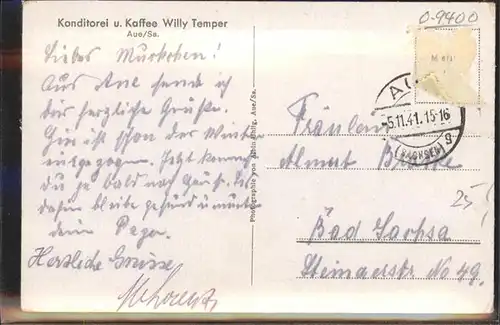 Konditorei u. Kaffee Willy Temper
Aue/Sa.
0-9400
Liebes Murkchen!
Aus Aue sende ich
dir herzliche Grüße.
Hier ist schon der Winter
eingezogen. Jetzt kommst
du ja bald nach Haus. Bis
dahin bleibe gesund u. munter
dein Papa.
Herzliche Grüsse
Photographie von
Aue/Sa.
AUE
-5.11.41.15-16
(SACHSEN)
g
Fräulein
Almut
Bad Sachsa
Steinaerstr No 49.
25